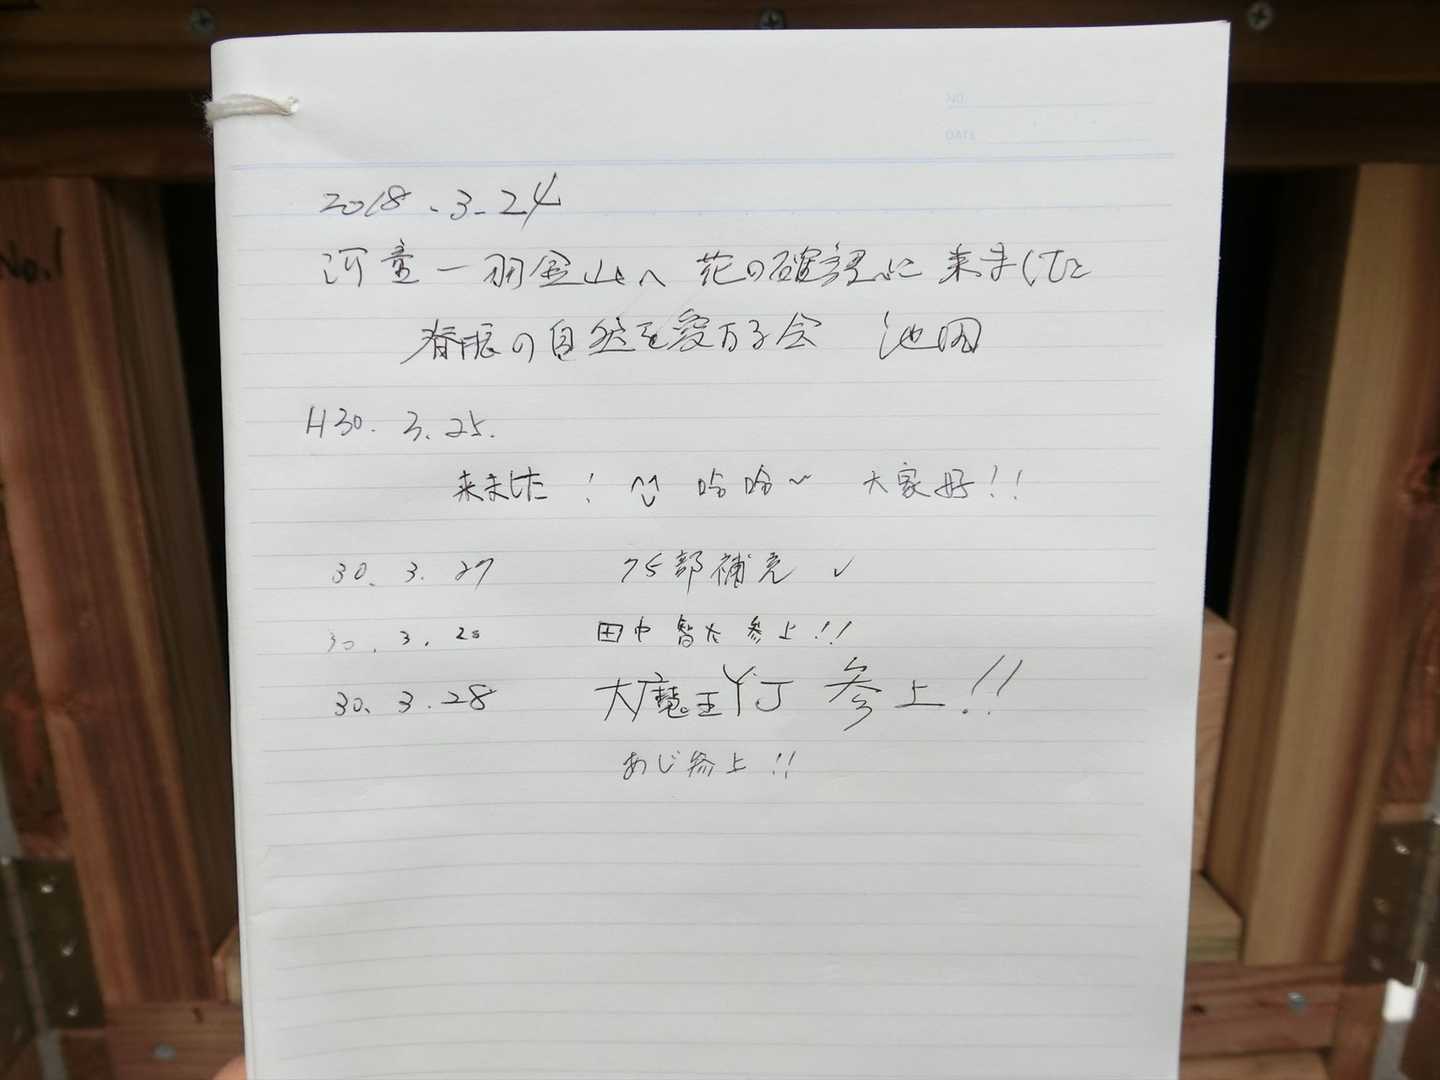 2018.3.24
河童ー羽金山へ 花の確認に来ました
脊振の自然を愛する会 池田
H30. 3.25.
来ました! 哈哈~ 大家好!!
30. 3. 27 75部補充 ✓
30. 3. 28 田中智大 参上!!
30. 3. 28 大魔王YJ 参上!!
あじ参上!!
No.1